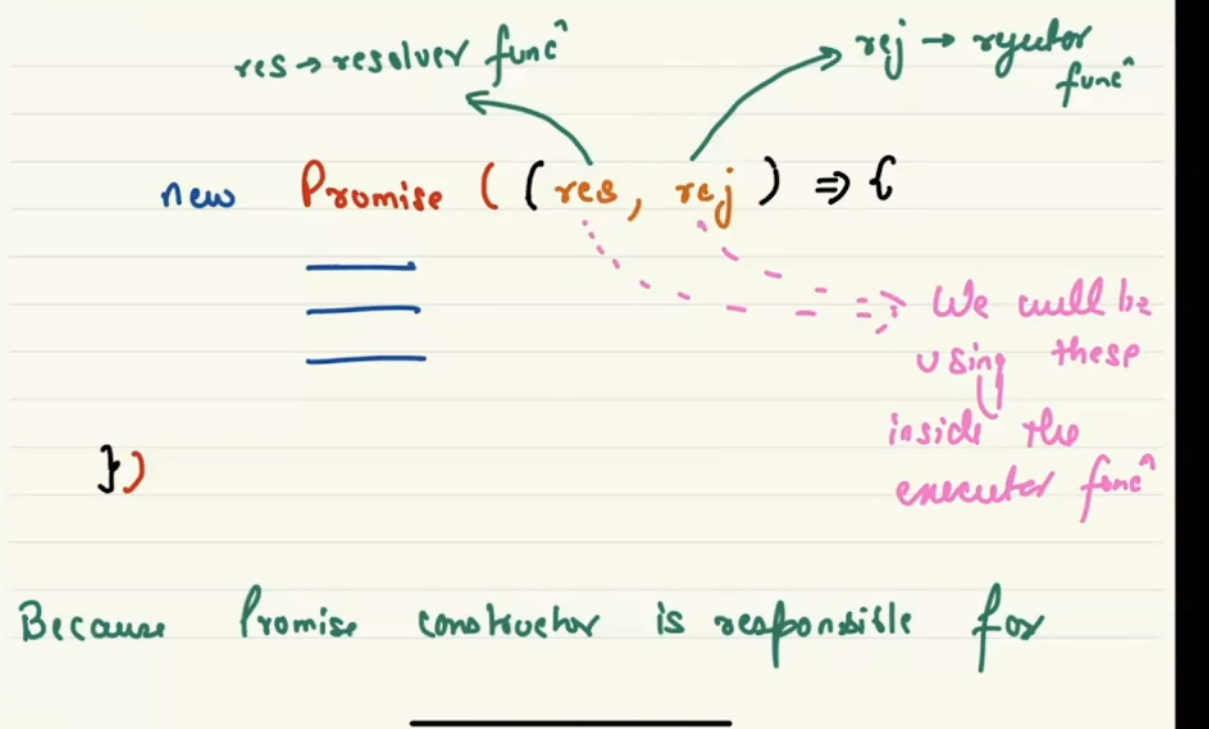 res → resolver funcⁿ
rej → rejector
funcⁿ
new Promise ( ( res, rej ) => {
We will be
using these
inside the
executor funcⁿ
})
Because Promise constructor is responsible for